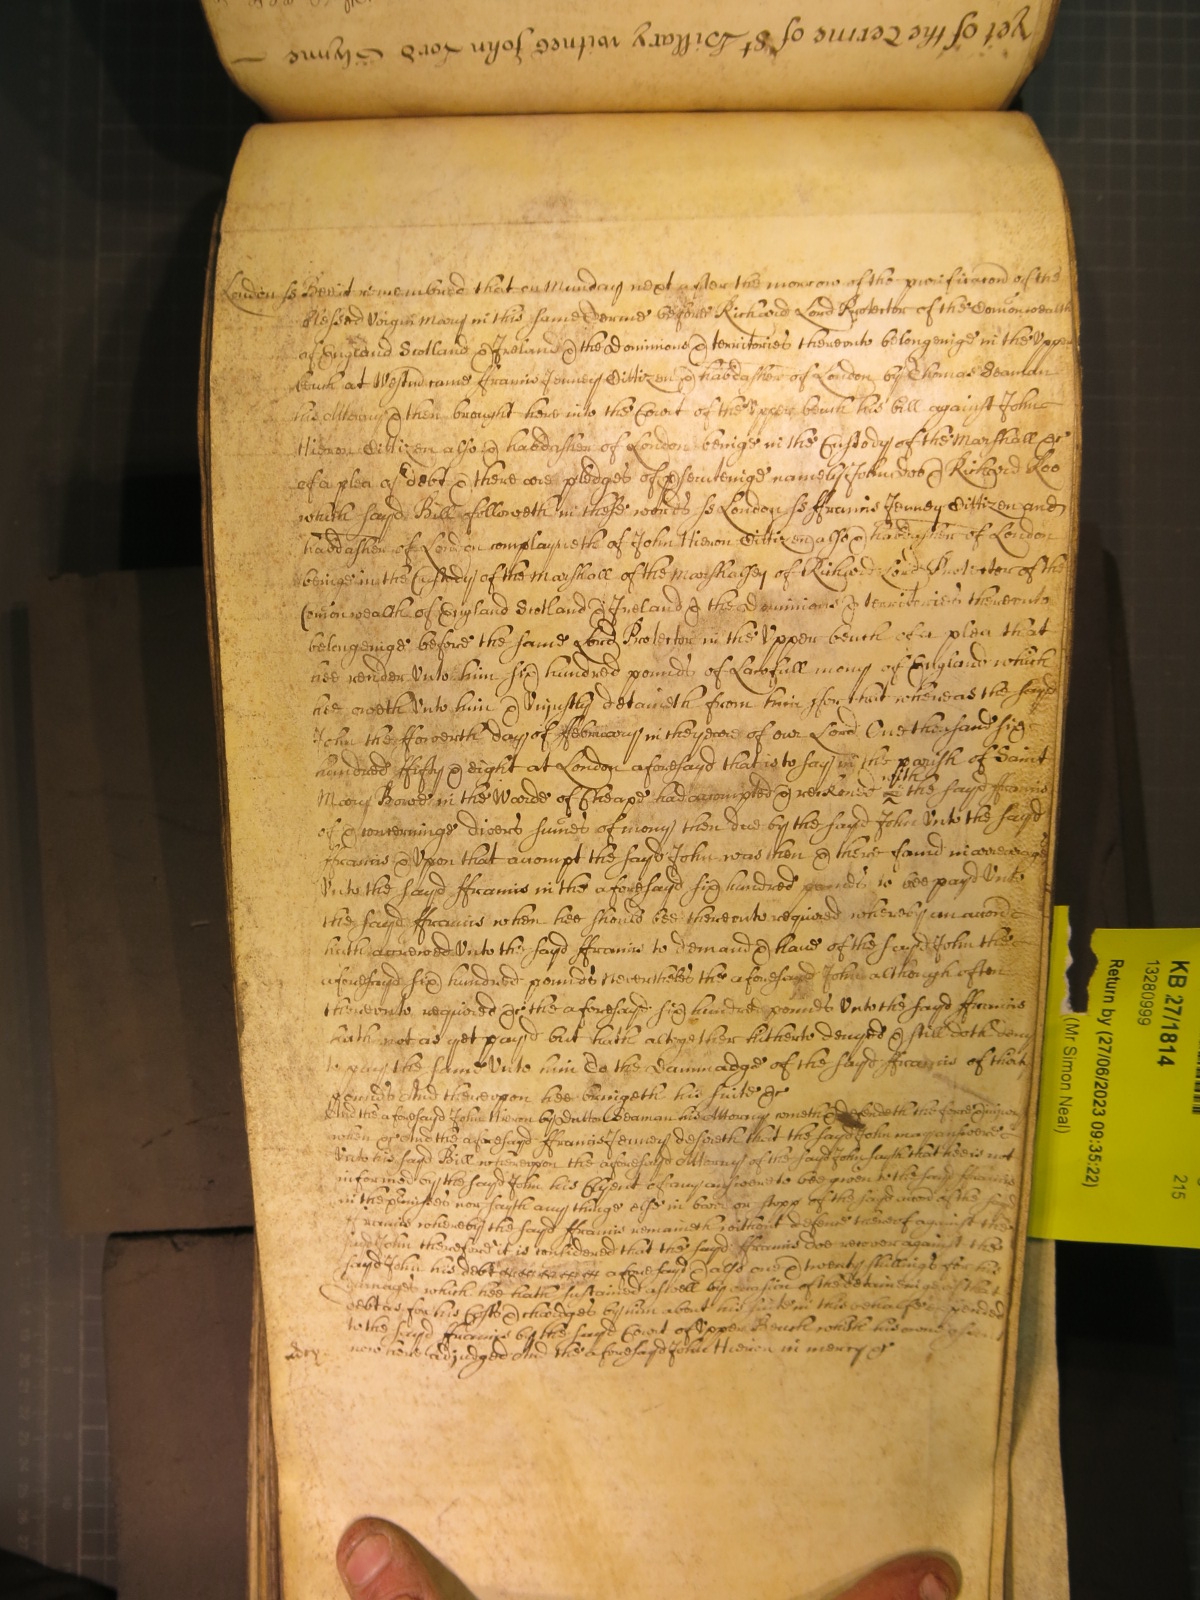 yet of the Terme of St Hillary witnes John Lord Glynne
London ss Bee it remembred that on Munday next after the morrow of the purificacon of the
Blessed Virgin Mary in this same Terme before Richard Lord Protector of the Comonwealth
of England Scotland & Ireland & the Dominions & territories thereunto belongeinge in the Upper
bench at Westm came ffrancis Jenney Cittizen & habdasher of London by Thomas Beaman
his Attorny & then brought here into the Court of the Upper bench his bill against John
Hieron Cittizen also & habdasher of London beinge in the Custody of the Marshall &c
of a plea of debt & there are pledges of psecuteinge namely John doe & Richard Roe
which sayd Bill followeth in these words ss London ss ffrancis Jenney Cittizen and
habdasher of London complayneth of John Hieron Cittizen also & habdasher of London
beinge in the Custody of the Marshall of the Marshalsey of Richard Lord Protector of the
Comonwealth of England Scotland & Ireland & the Dominions & territories thereunto
belongeinge before the same Lord Protector in the Upper bench of a plea that
hee render unto him six hundred pounds of Lawfull mony of England which
hee oweth unto him & uniustly detaineth from him for that whereas the sayd
John the ffowerth day of ffebruary in the yeare of our Lord One thousand six
hundred ffifty & eight at London aforesayd that is to say in the parish of Saint
Mary Bowe in the Warde of Cheape had accompted & reckoned with the sayd ffrancis
of & concerninge divers sumes of mony then due by the sayd John unto the sayd
ffrancis & upon that accompt the sayd John was then & there found in arrerage
unto the sayd ffrancis in the aforesayd six hundred pounds to bee payd unto
the sayd ffrancis when hee should bee thereunto required whereby an accon
hath accrewed unto the sayd ffrancis to demand & have of the sayd John the
aforesayd six hundred pounds Neverthelesse the aforesayd John although often
thereunto required &c the aforesayd six hundred pounds unto the sayd ffrancis
hath not as yet payd but hath altogether hitherto denyed & still doth deny
to pay the same unto him To the Dammadge of the sayd ffrancis of
pounds And thereupon hee bringeth his suite &c
And the aforesayd John Hieron by Beaman his Attorny cometh & defendeth the force & iniury
when &c And the aforesayd ffrancis Jenney desireth that the sayd John may answere
unto his sayd Bill whereupon the aforesayd Attorny of the sayd John sayth that hee is not
informed by the sayd John his Clyent of any answere to bee given to the sayd ffrancis
in the pmisses nor sayth any thinge else in barr or stopp of the sayd accon of the sayd
ffrancis whereby the sayd ffrancis remaineth without defense thereof against the
sayd John therefore it is considered that the sayd ffrancis doe recover against the
sayd John his debt aforesayd & also one & twenty shillings for his
damages which hee hath sustained aswell by occasion of the detaineinge of that
debt as for his Costs & chardges by him about his suite in this behalfe expended
to the sayd ffrancis by the sayd Court of Upper Bench with his owne assent
now here adjudged And the aforesayd John Hieron in mercy &c
KB 27/1814
13280999
215
Return by (27/06/2023 09:35:22)
(Mr Simon Neal)